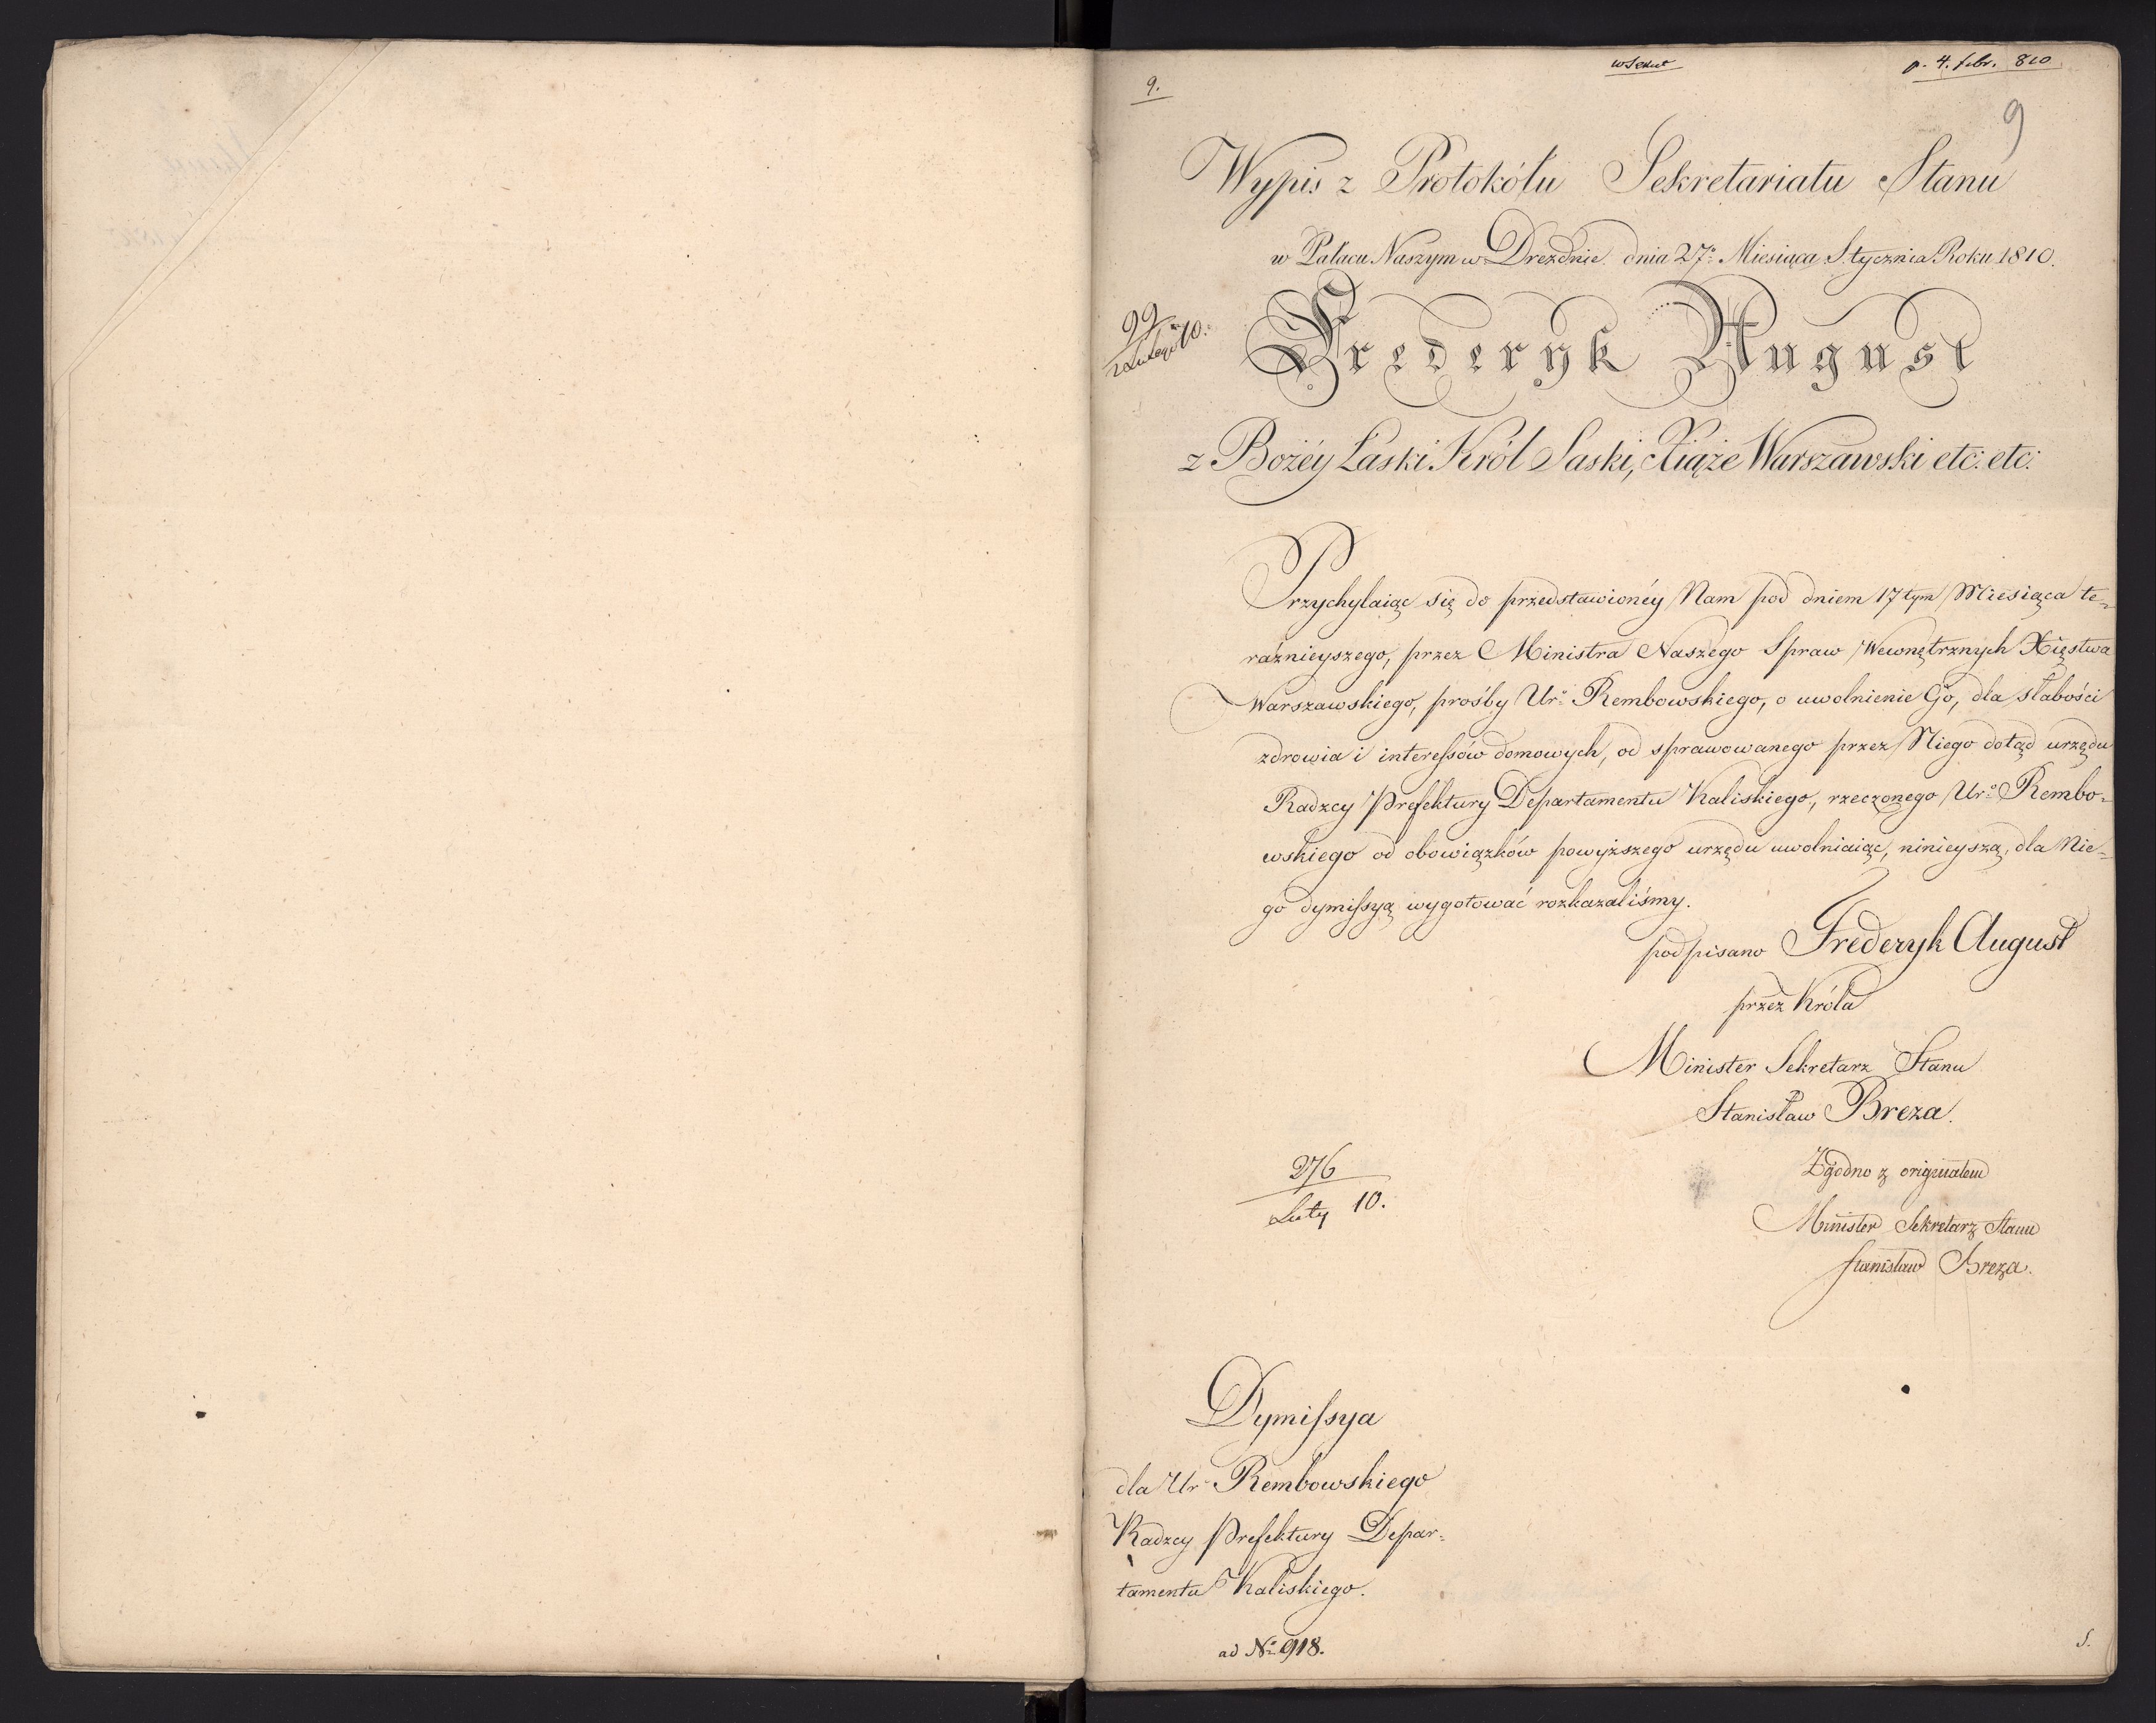 9.
p. 4. febr. 810
9
Wypis z Protokółu Sekretariatu Stanu
w Pałacu Naszym w Dreźdnie dnia 27º Miesiąca Stycznia Roku 1810.
99
z Lutego 10.
Frederyk August
z Bożéy Łaski Król Saski, Xiąże Warszawski etc: etc:
Przychylaiąc się do przedstawionéy Nam pod dniem 17tym Miesiąca te=
raźnieyszego, przez Ministra Naszego Spraw Wewnętrznych Xięstwa
Warszawskiego, prośby Urº Rembowskiego, o uwolnienie Go, dla słabości
zdrowia i interessów domowych, od sprawowanego przez Niego dotąd urzędu
Radzcy Prefektury Departamentu Kaliskiego, rzeczonego Urº Rembo=
wskiego od obowiązków powyższego urzędu uwolniaiąc, ninieyszą, dla Nie=
go dymissyą wygotować rozkazaliśmy.
podpisano Frederyk August
przez Króla
Minister Sekretarz Stanu
Stanisław Breza.
276
Luty 10.
Zgodno z originałem
Minister Sekretarz Stanu
Stanisław Breza.
Dymissya
dla Urº Rembowskiego
Radzcy Prefektury Depar=
tamentu Kaliskiego.
ad Nº 918.